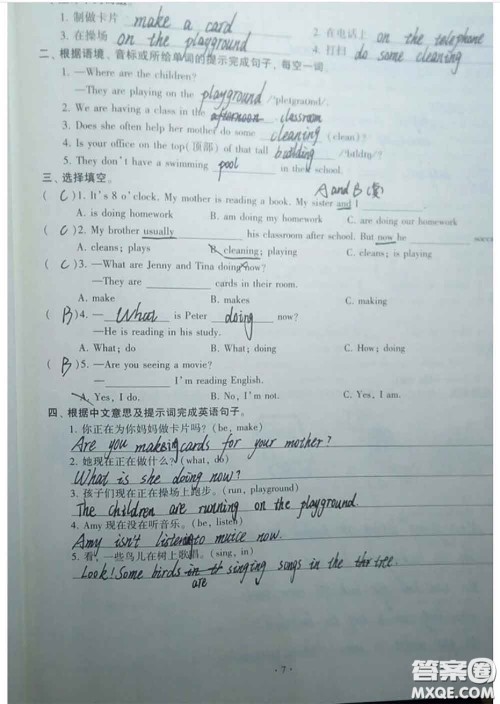 1. 制做卡片 make a card 2. 在电话上 on the telephone
3. 在操场 on the playground 4. 打扫 do some cleaning
二、根据语境、音标或所给单词的提示完成句子，每空一词。
1. —Where are the children?
—They are playing on the playground /ˈpleɪɡraʊnd/.
2. We are having a class in the afternoon classroom
3. Does she often help her mother do some cleaning (clean)?
4. Is your office on the top(顶部) of that tall building /ˈbɪldɪŋ/?
5. They don't have a swimming pool in their school.
三、选择填空。 A and B (复)
( C ) 1. It's 8 o'clock. My mother is reading a book. My sister and I
A. is doing homework B. am doing my homework C. are doing our homework
( C ) 2. My brother usually his classroom after school. But now he socc
A. cleans; plays B. cleaning; playing C. cleans; is playing
( C ) 3. —What are Jenny and Tina doing now?
—They are cards in their room.
A. make B. makes C. making
( B ) 4. — What is Peter doing now?
—He is reading in his study.
A. What; do B. What; doing C. How; doing
( B ) 5. —Are you seeing a movie?
— I'm reading English.
A. Yes, I do. B. No, I'm not. C. Yes, I am.
四、根据中文意思及提示词完成英语句子。
1. 你正在为你妈妈做卡片吗？(be, make)
Are you making cards for your mother?
2. 她现在正在做什么？(what, do)
What is she doing now?
3. 孩子们现在正在操场上跑步。(run, playground)
The children are running on the playground.
4. Amy 现在没在听音乐。(be, listen)
Amy isn't listening to muice now.
5. 看，一些鸟儿在树上歌唱。(sing, in)
Look! Some birds are singing songs in the tree.
· 7 ·
答案圈
MXQE.COM